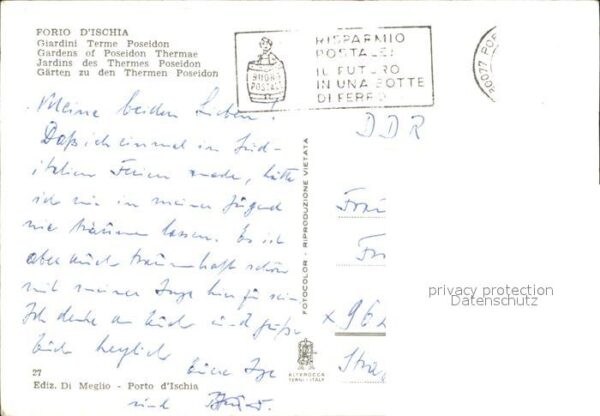 FORIO D'ISCHIA
Giardini Terme Poseidon
Gardens of Poseidon Thermae
Jardins des Thermes Poseidon
Gärten zu den Thermen Poseidon
I BUONI
POSTALI
RISPARMIO
POSTALE:
IL FUTURO
IN UNA BOTTE
DI FERRO
80077
DDR
Meine beiden Lieben!
Daß ich einmal in Süd-
italien Ferien mache, hätte
ich mir in meiner Jugend
nie träumen lassen. Es ist
aber auch traumhaft schön
mit meiner Inge hier zu sein
Ich denke an Euch und grüße
Euch herzlich
Eure Inge
und
FOTOCOLOR - RIPRODUZIONE VIETATA
privacy protection
Datenschutz
x 96
27
Ediz. Di Meglio - Porto d'Ischia
ALTEROCCA
TERNI - ITALY